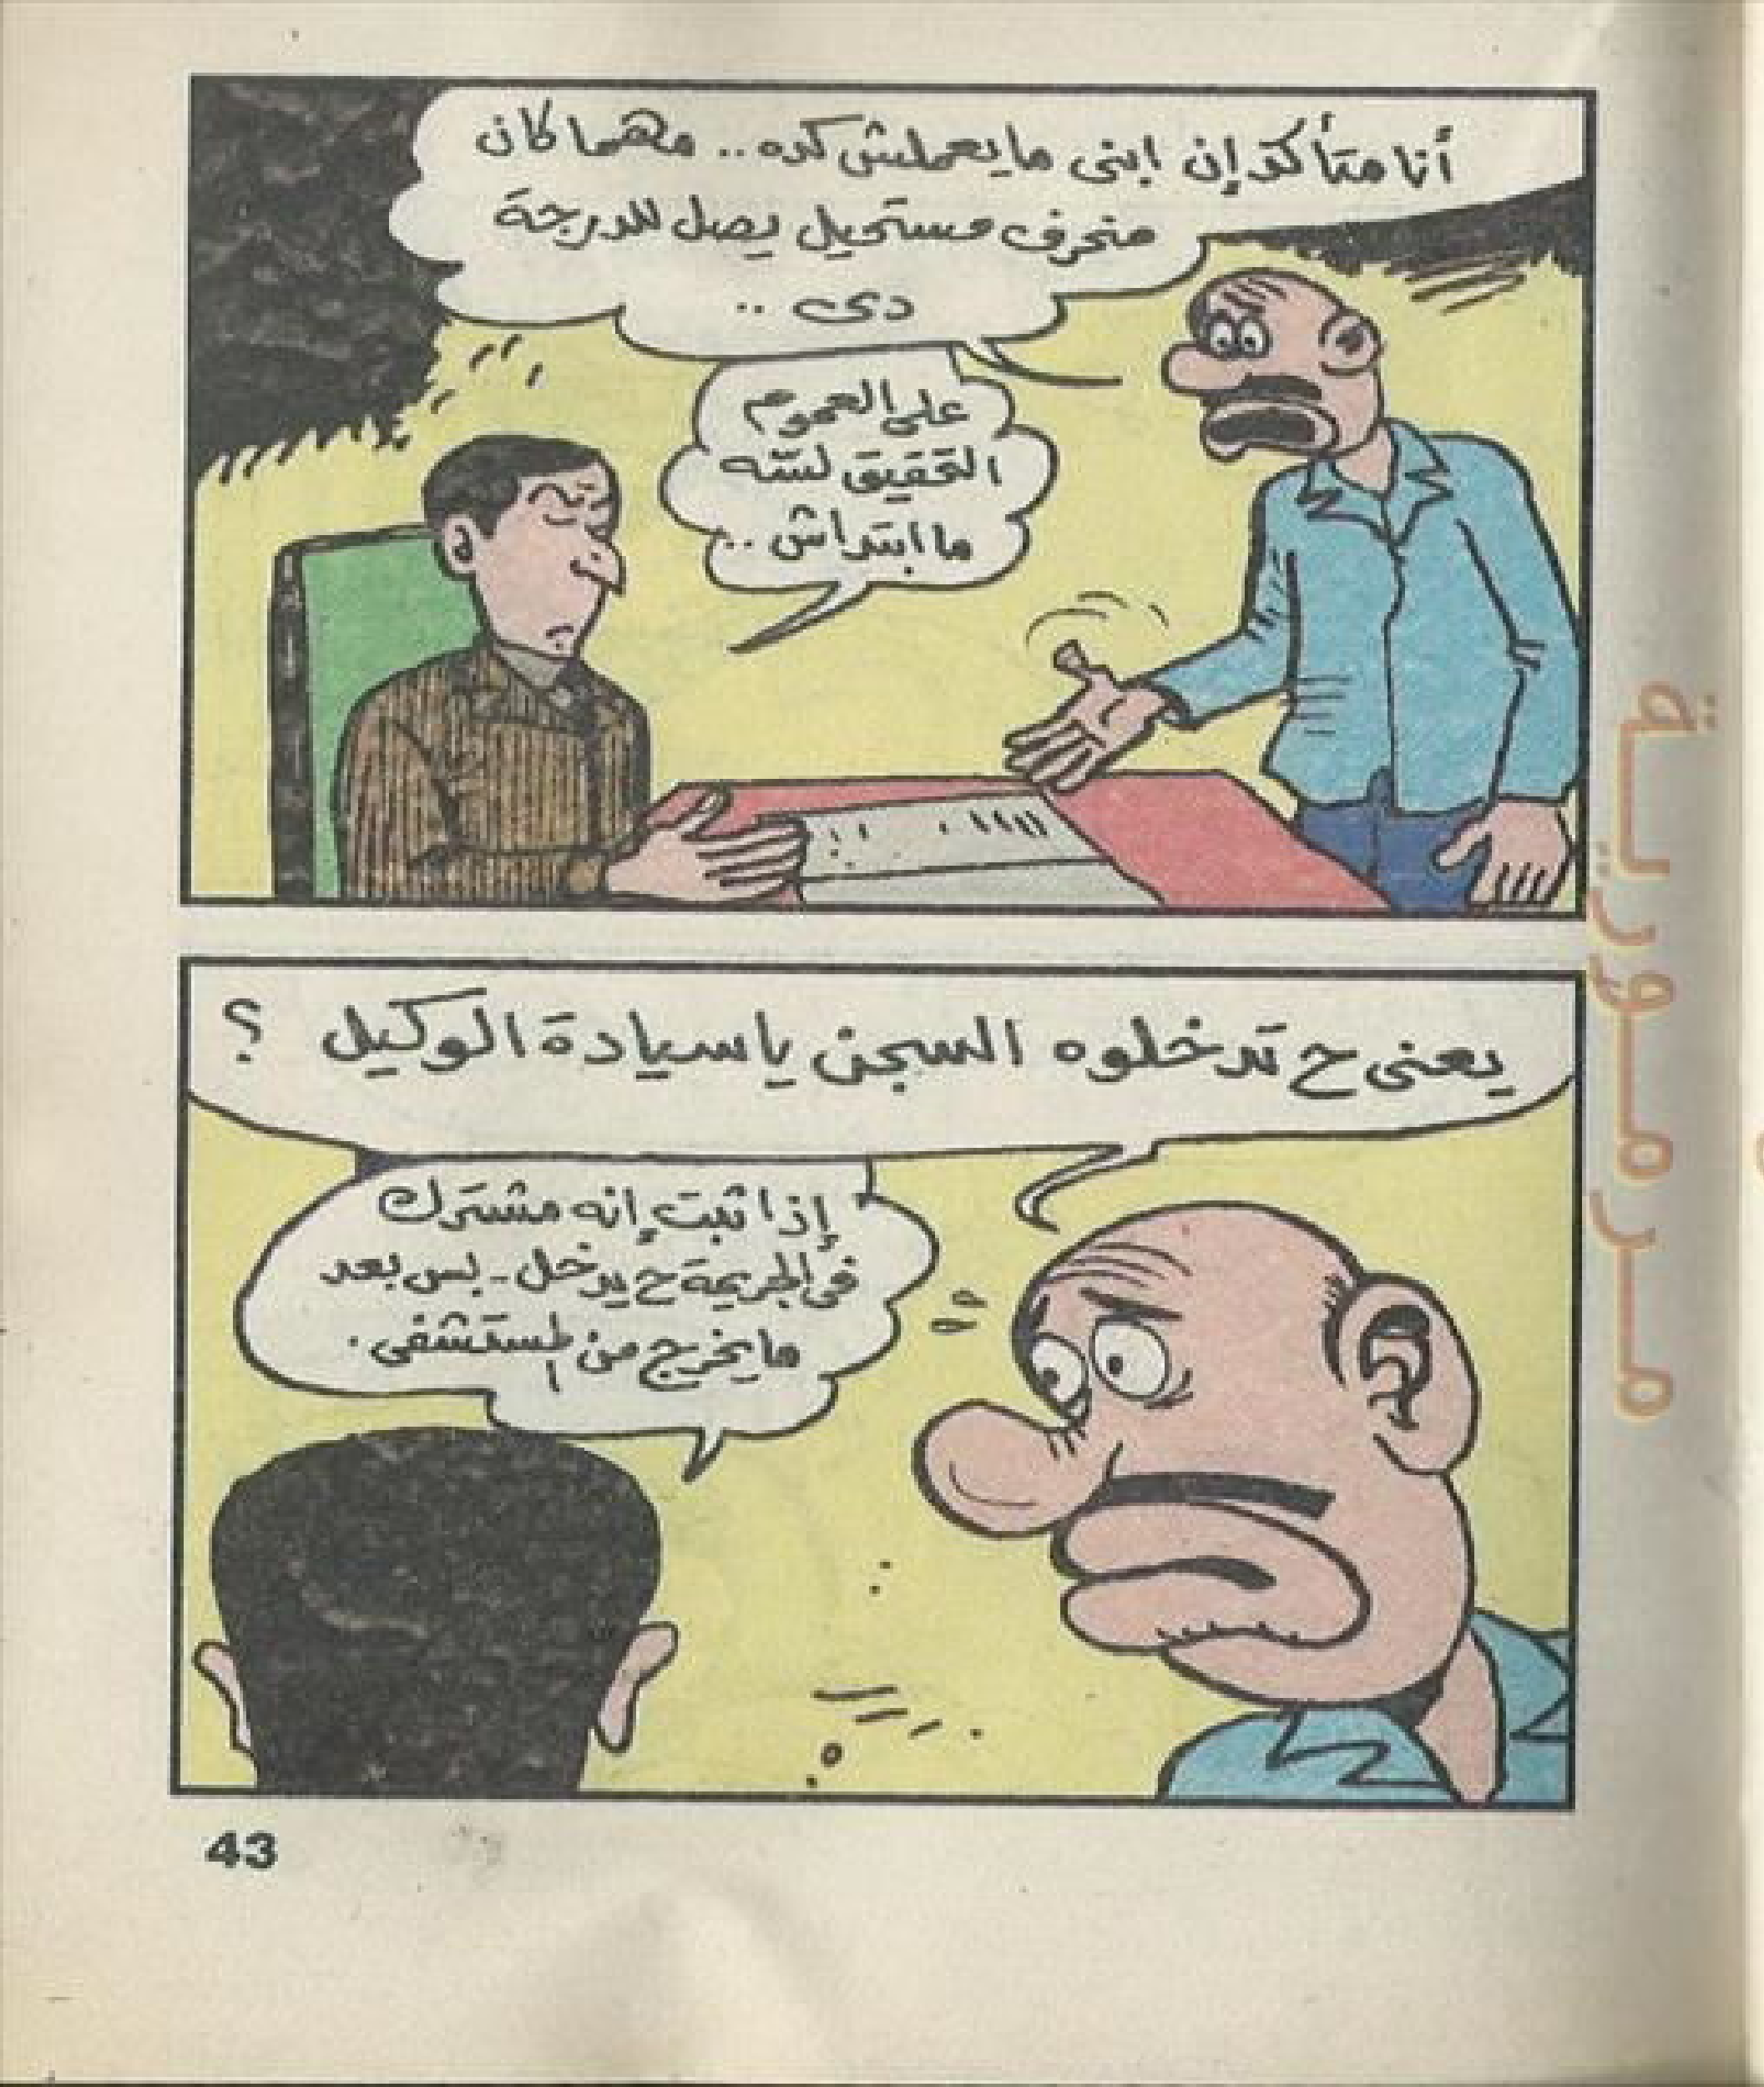 أنا متأكد إن ابنى ما يعملش كده.. مهما كان
منحرف مستحيل يصل للدرجة
دى ..
على العموم
التحقيق لسّه
ما ابتداش ..
يعنى ح تدخلوه السجن يا سيادة الوكيل ؟
إذا ثبت إنه مشترك
فى الجريمة ح يدخل - بس بعد
ما يخرج من المستشفى .
43
مرمورية